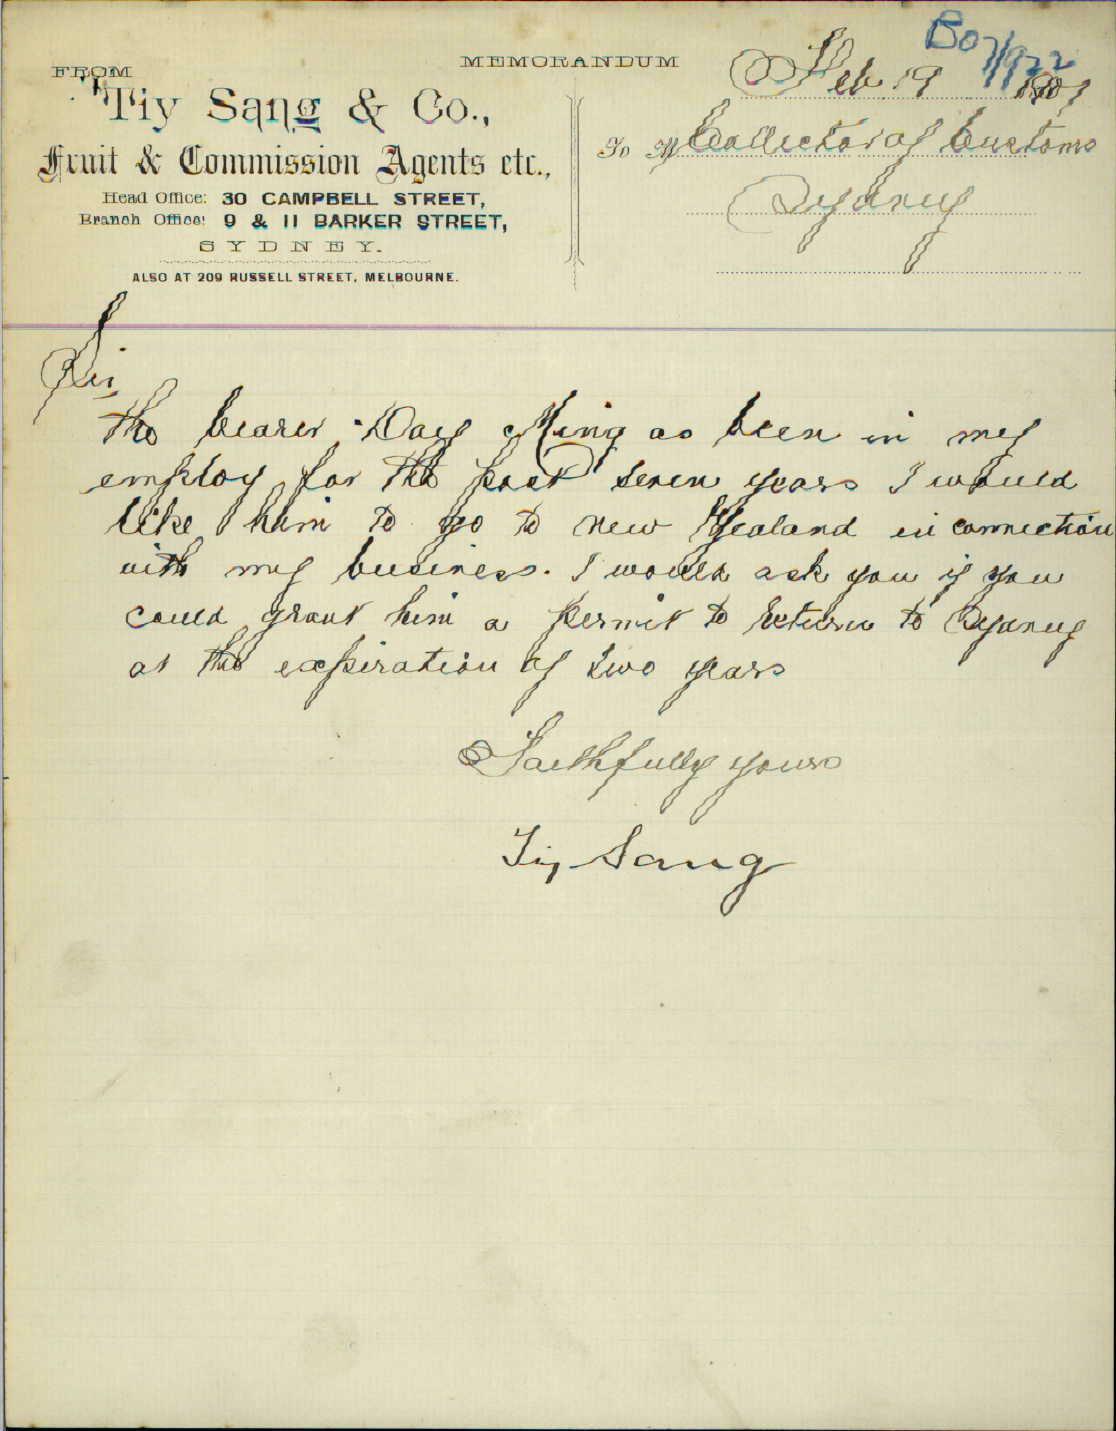 FROM
MEMORANDUM
Tiy Sang & Co.,
Fruit & Commission Agents etc.,
Head Office: 30 CAMPBELL STREET,
Branch Office: 9 & 11 BARKER STREET,
SYDNEY.
ALSO AT 209 RUSSELL STREET, MELBOURNE.
Feb 19
To M Collector of Customs
Sydney
Sir,
The bearer Day Ming as been in my
employ for the past seven years I would
like him to go to new Zealand in connection
with my business. I would ask you if you
could grant him a permit to return to Sydney
at the expiration of two years
Faithfully yours
Tiy Sang